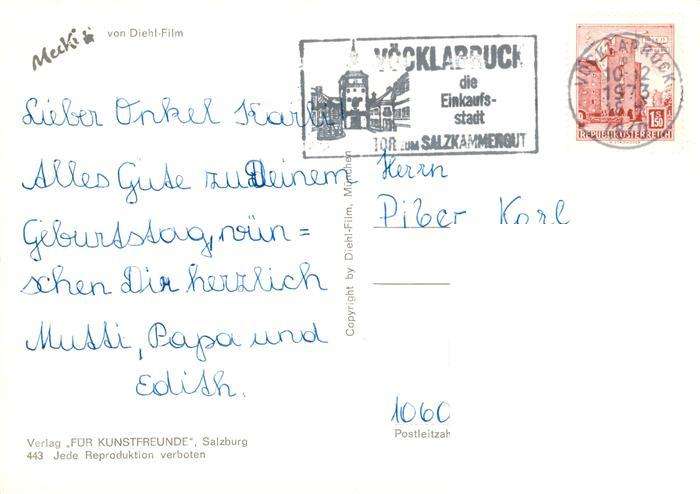 Mecki
von Diehl-Film
VÖCKLABRUCK
die
Einkaufs-
stadt
TOR ZUM SALZKAMMERGUT
VÖCKLABRUCK
10.12
1973
REPUBLIK ÖSTERREICH
1.50
Lieber Onkel
Alles Gute zu Deinem
Geburtstag, wün =
schen Dir herzlich
Mutti, Papa und
Edith.
Copyright by Diehl-Film, München
Herrn
Piber Karl
1060
Postleitzah
Verlag „FÜR KUNSTFREUNDE", Salzburg
443 Jede Reproduktion verboten